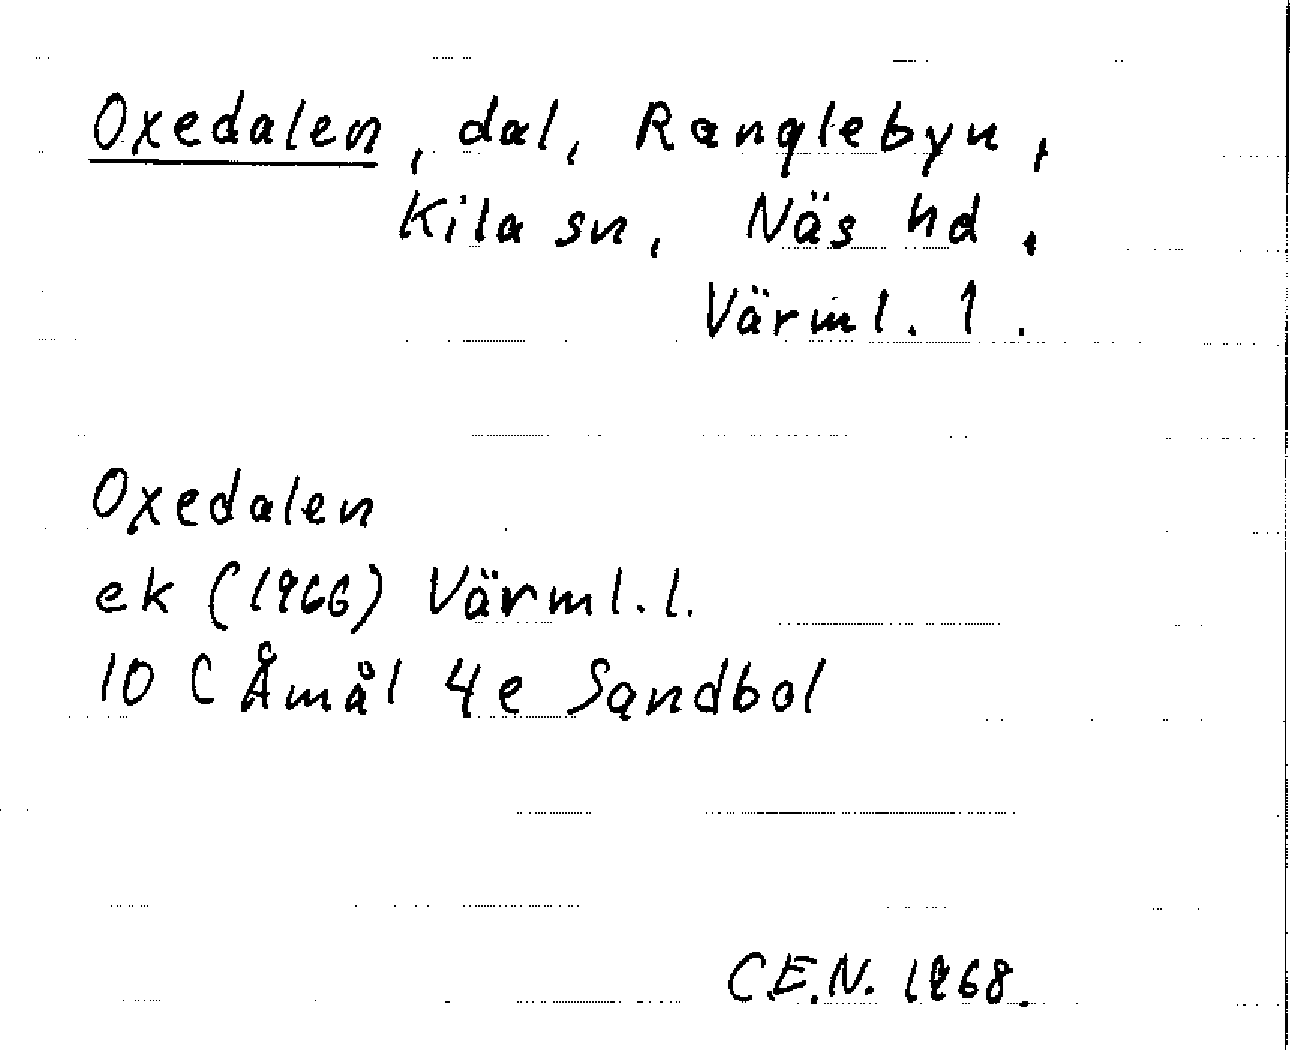 Oxedalen, dal, Ranglebyn,
Kila sn, Näs hd.
Värml. l.
Oxedalen
ek (1966) Värml. l.
10 C Åmål 4e Sandbol
C.E.N. 1968.